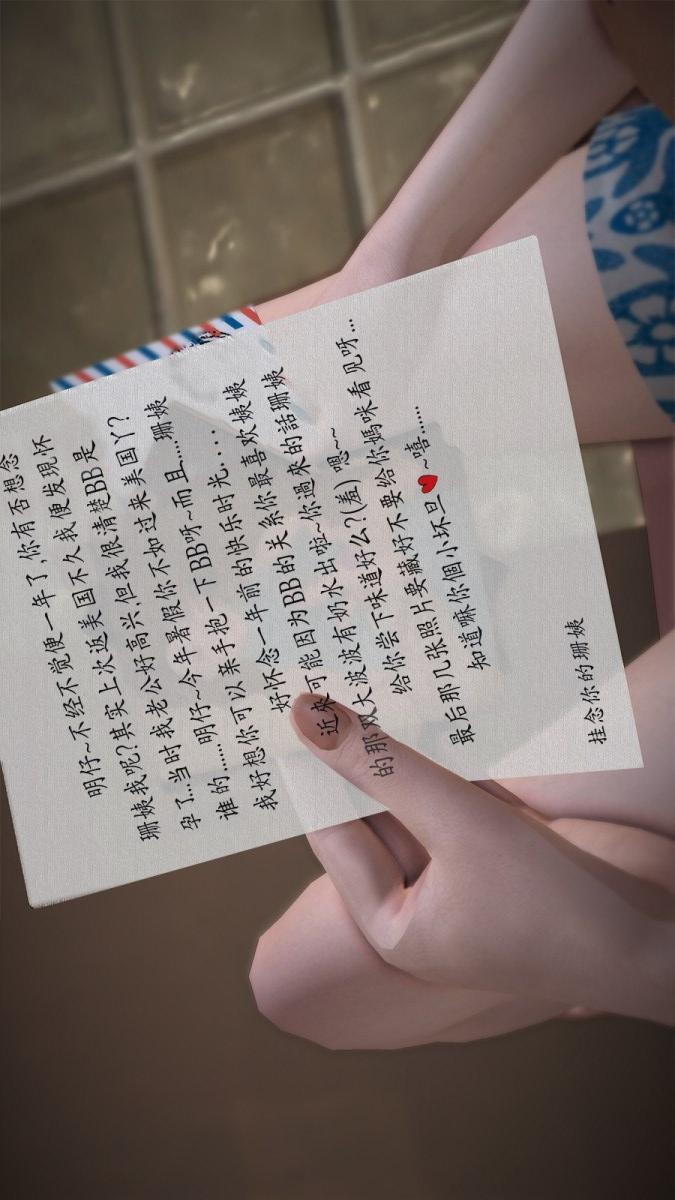 明仔~不经不觉便一年了,你有否想念
珊姨我呢?其实上次返美国不久我便发現怀
孕了...当时我老公好高兴,但我很清楚BB是
谁的......明仔~今年暑假你不如过来美国丫?
我好想你可以亲手抱一下BB呀~而且.....珊姨
好怀念一年前的快乐时光....
近來可能因为BB的关系你最喜欢姨姨
的那双大波波有奶水出啦~你過来的話珊姨
给你尝下味道好么?(羞) 嗯~~
最后那几张照片要藏好不要给你媽咪看見呀...
知道嘛你個小坏旦❤~嘻.....
挂念你的珊姨